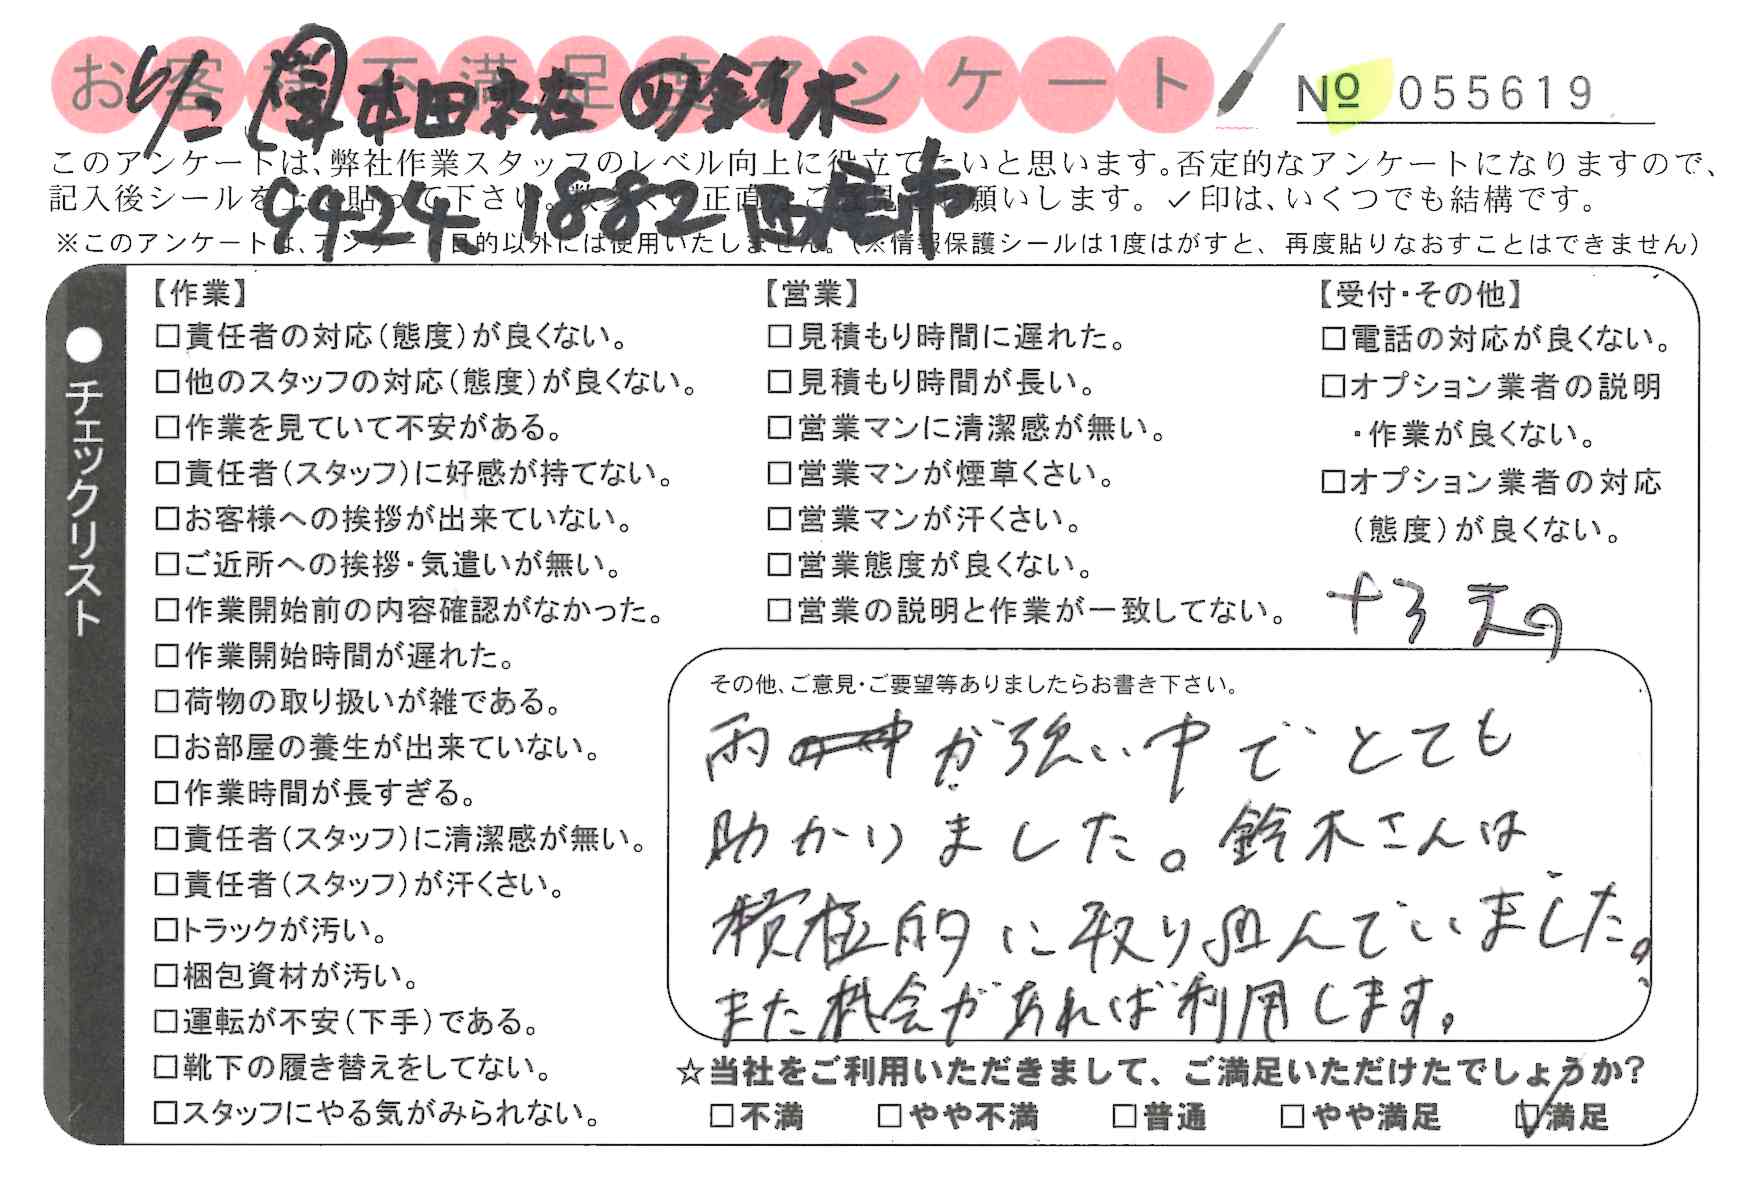 お客様不満足度アンケート
№ 055619
6/2 本田 鈴木
9424 1882 西尾市
このアンケートは、弊社作業スタッフのレベル向上に役立てたいと思います。否定的なアンケートになりますので、
記入後シールを上に貼って下さい。 正直なご意見をお願いします。✓印は、いくつでも結構です。
※このアンケートは、アンケート目的以外には使用いたしません。(※情報保護シールは1度はがすと、再度貼りなおすことはできません)
●チェックリスト
【作業】
□責任者の対応(態度)が良くない。
□他のスタッフの対応(態度)が良くない。
□作業を見ていて不安がある。
□責任者(スタッフ)に好感が持てない。
□お客様への挨拶が出来ていない。
□ご近所への挨拶・気遣いが無い。
□作業開始前の内容確認がなかった。
□作業開始時間が遅れた。
□荷物の取り扱いが雑である。
□お部屋の養生が出来ていない。
□作業時間が長すぎる。
□責任者(スタッフ)に清潔感が無い。
□責任者(スタッフ)が汗くさい。
□トラックが汚い。
□梱包資材が汚い。
□運転が不安(下手)である。
□靴下の履き替えをしてない。
□スタッフにやる気がみられない。
【営業】
□見積もり時間に遅れた。
□見積もり時間が長い。
□営業マンに清潔感が無い。
□営業マンが煙草くさい。
□営業マンが汗くさい。
□営業態度が良くない。
□営業の説明と作業が一致してない。
【受付・その他】
□電話の対応が良くない。
□オプション業者の説明
・作業が良くない。
□オプション業者の対応
(態度)が良くない。
その他、ご意見・ご要望等ありましたらお書き下さい。
雨が強い中でとても
助かりました。鈴木さんは
積極的に取り組んでいました。
また機会があれば利用します。
☆当社をご利用いただきまして、ご満足いただけたでしょうか?
□不満 □やや不満 □普通 □やや満足 ☑満足